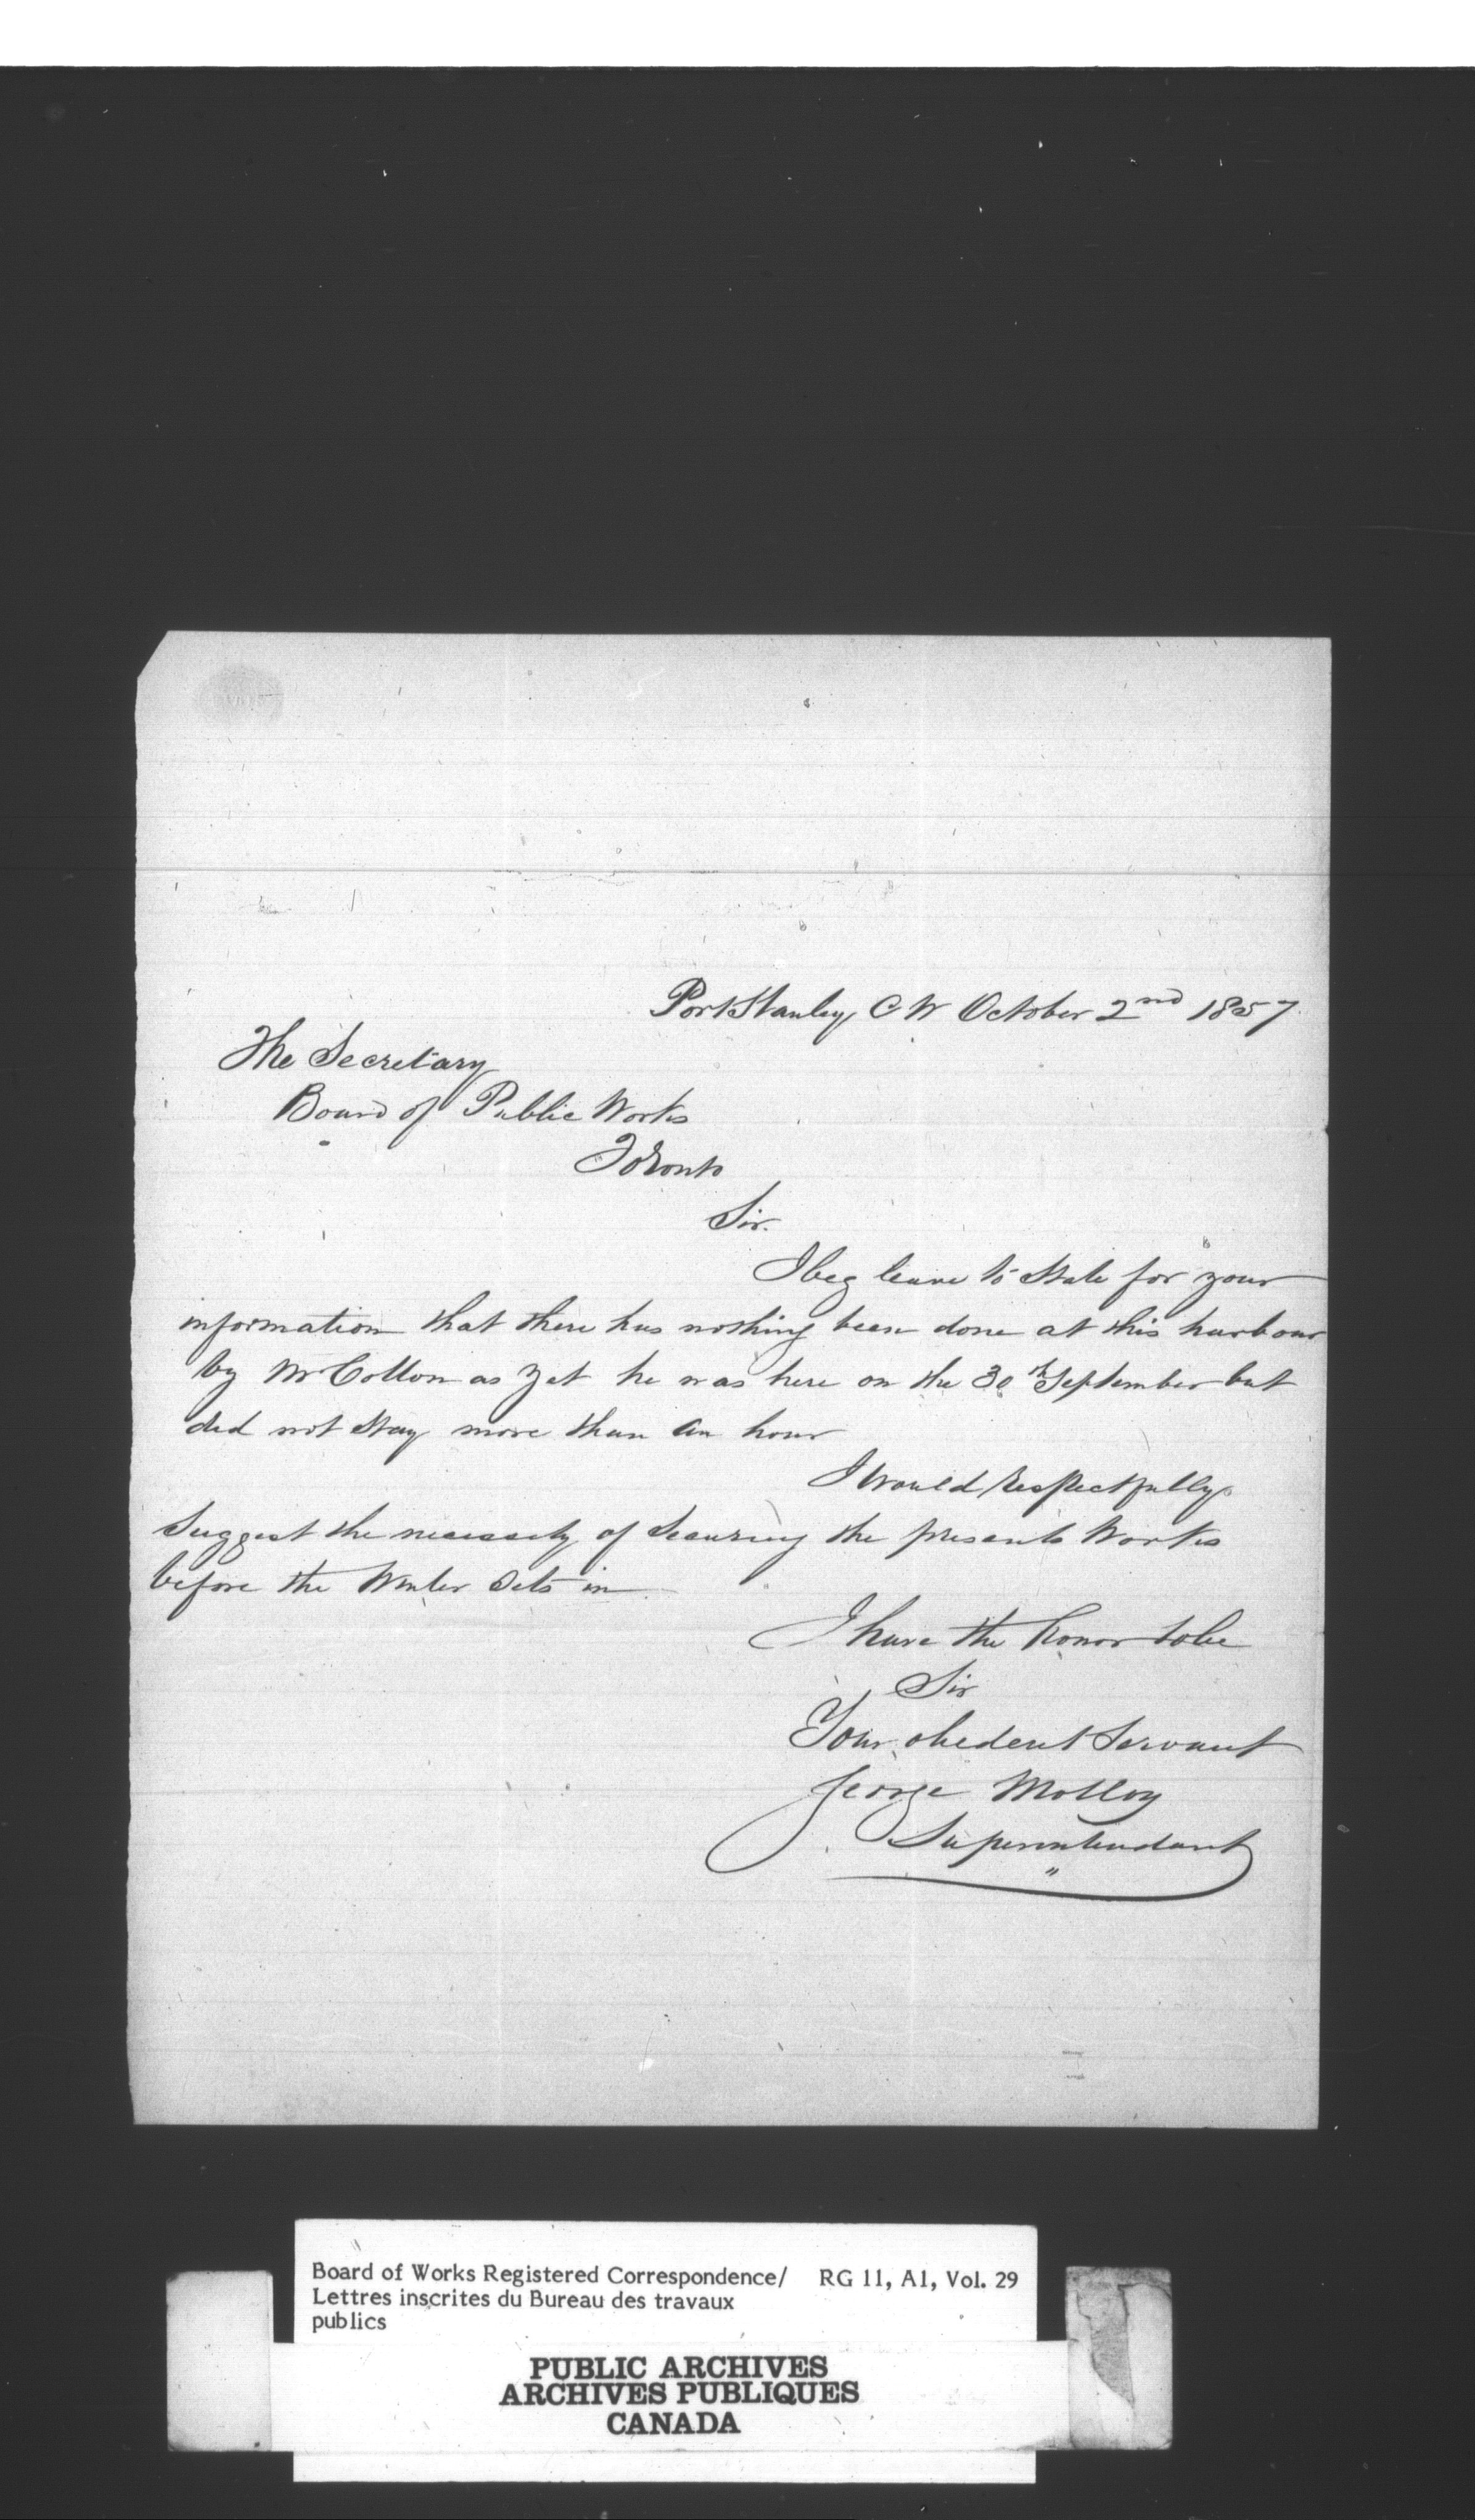 Port Stanley C W October 2nd 1857
The Secretary
Board of Public Works
Toronto
Sir.
I beg leave to State for your
information that there has nothing been done at this harbour
by Mr Cotton as yet he was here on the 30th September but
did not stay more than an hour
I would respectfully
Suggest the necessity of Securing the present Works
before the Winter Sets in
I have the honor to be
Sir
Your obedent Servant
George Molloy
Superintendant
Board of Works Registered Correspondence/ RG 11, A1, Vol. 29
Lettres inscrites du Bureau des travaux
publics
PUBLIC ARCHIVES
ARCHIVES PUBLIQUES
CANADA